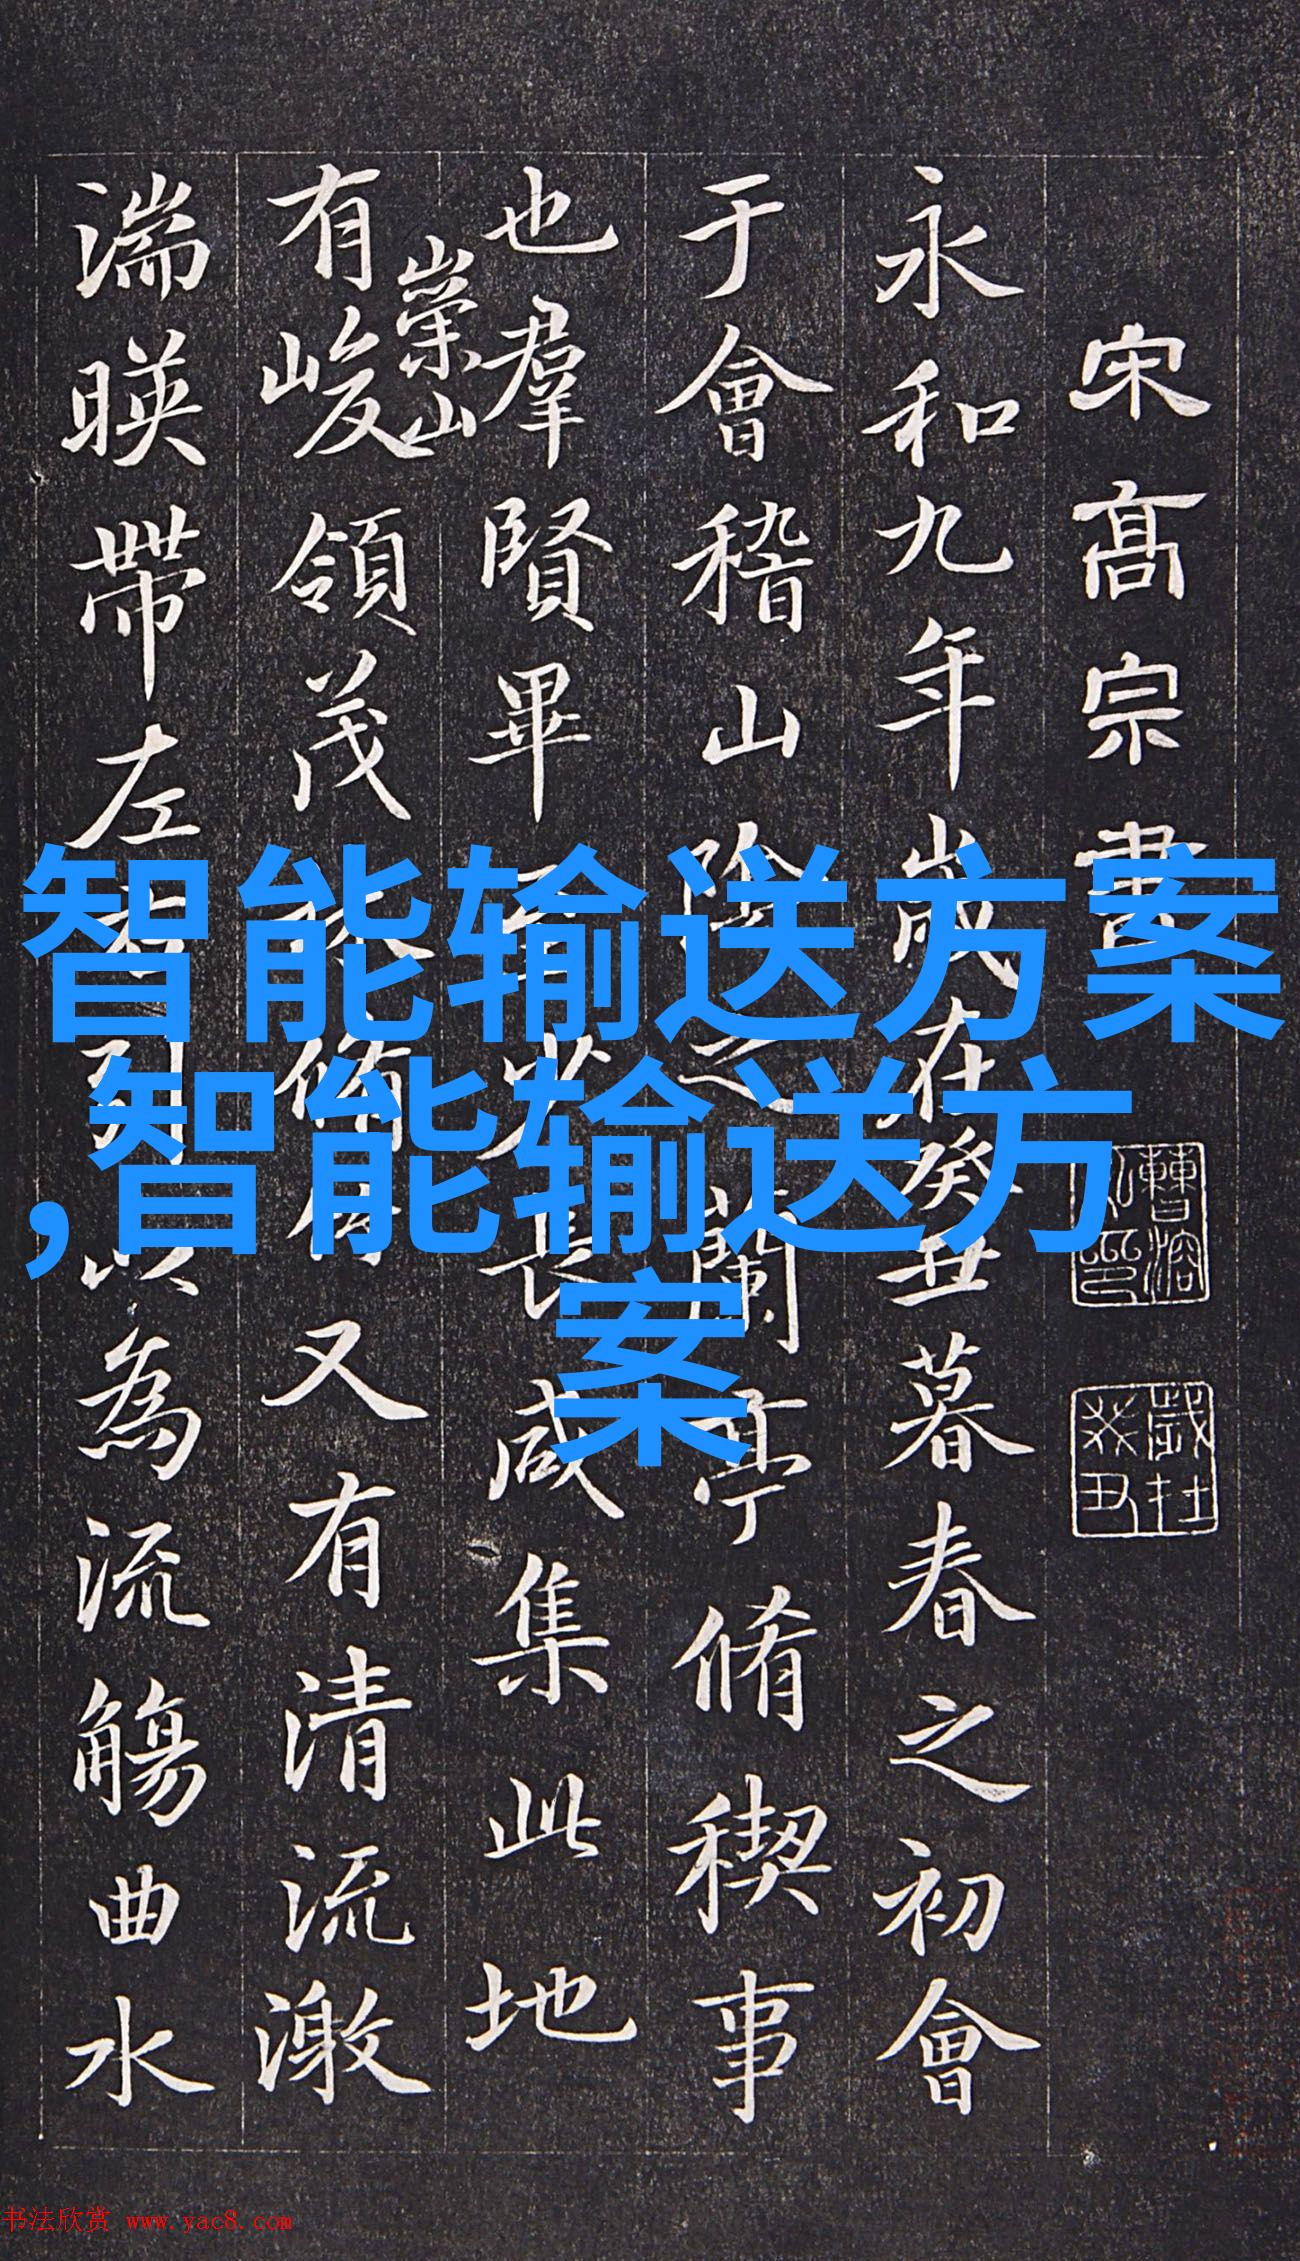 宋高宗書
永和九年歲在癸丑暮春之初會
于會稽山陰之蘭亭脩禊事
也羣賢畢至少長咸集此地
有崇山峻領茂林脩竹又有清流激
湍暎帶左右引以為流觴曲水
智能输送方案
,智能输送方
案
书法欣赏 www.yac8.com